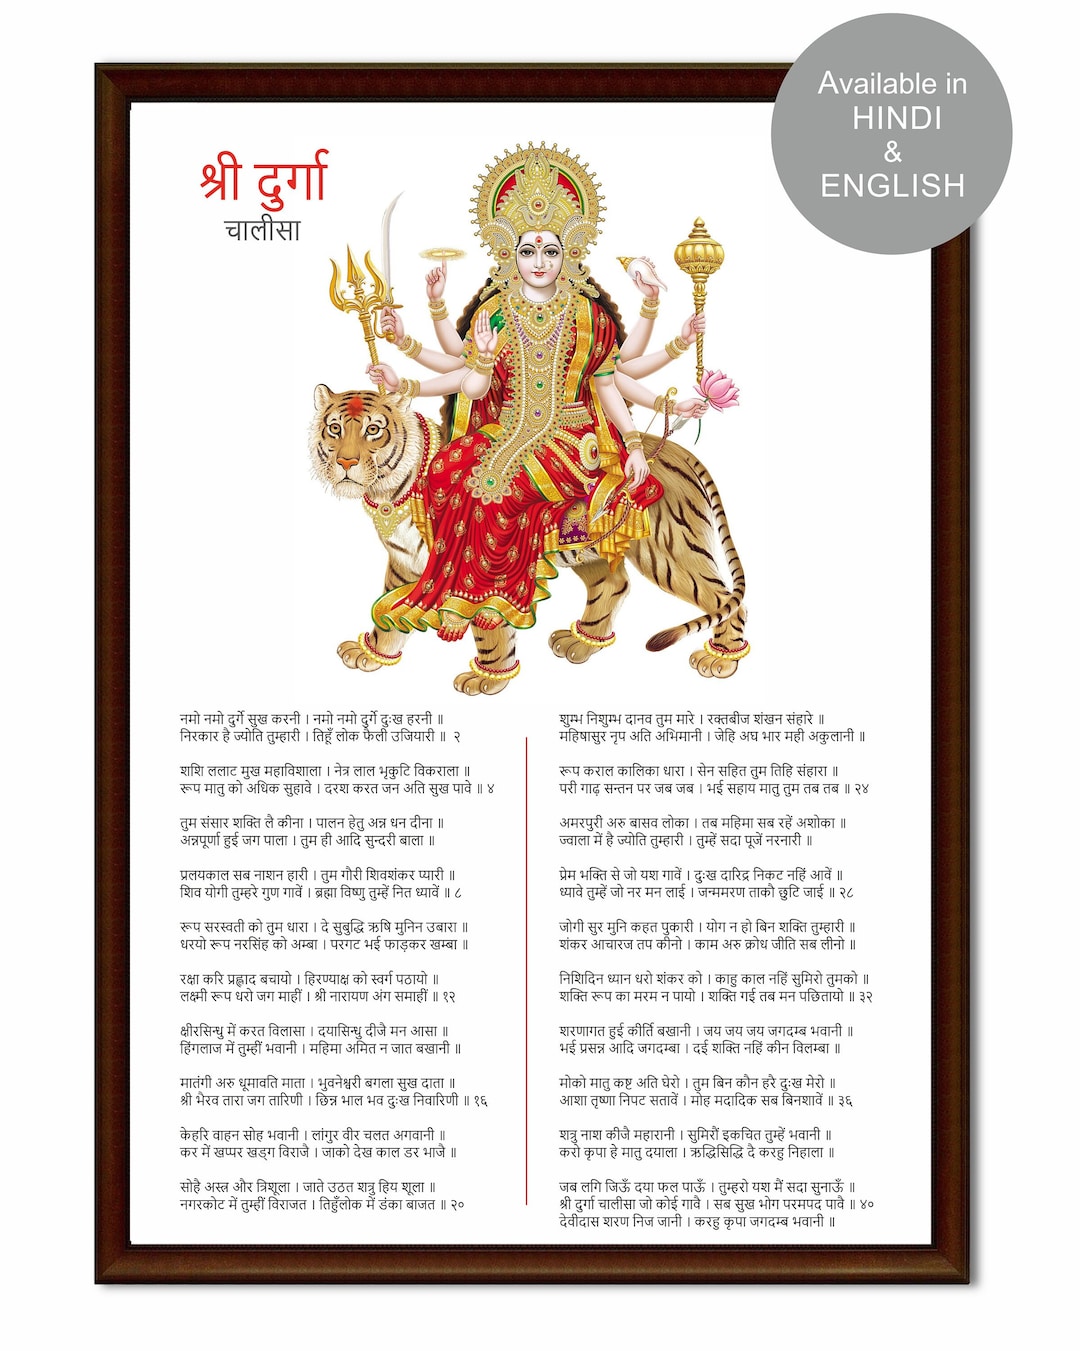 Available in
HINDI
&
ENGLISH
श्री दुर्गा
चालीसा
नमो नमो दुर्गे सुख करनी । नमो नमो दुर्गे दुःख हरनी ॥
निरकार है ज्योति तुम्हारी । तिहूँ लोक फैली उजियारी ॥ २
शशि ललाट मुख महाविशाला । नेत्र लाल भृकुटि विकराला ॥
रूप मातु को अधिक सुहावे । दरश करत जन अति सुख पावे ॥ ४
तुम संसार शक्ति लै कीना । पालन हेतु अन्न धन दीना ॥
अन्नपूर्णा हुई जग पाला । तुम ही आदि सुन्दरी बाला ॥
प्रलयकाल सब नाशन हारी । तुम गौरी शिवशंकर प्यारी ॥
शिव योगी तुम्हरे गुण गावें । ब्रह्मा विष्णु तुम्हें नित ध्यावें ॥ ८
रूप सरस्वती को तुम धारा । दे सुबुद्धि ऋषि मुनिन उबारा ॥
धरयो रूप नरसिंह को अम्बा । परगट भई फाड़कर खम्बा ॥
रक्षा करि प्रह्लाद बचायो । हिरण्याक्ष को स्वर्ग पठायो ॥
लक्ष्मी रूप धरो जग माहीं । श्री नारायण अंग समाहीं ॥ १२
क्षीरसिन्धु में करत विलासा । दयासिन्धु दीजै मन आसा ॥
हिंगलाज में तुम्हीं भवानी । महिमा अमित न जात बखानी ॥
मातंगी अरु धूमावति माता । भुवनेश्वरी बगला सुख दाता ॥
श्री भैरव तारा जग तारिणी । छिन्न भाल भव दुःख निवारिणी ॥ १६
केहरि वाहन सोह भवानी । लांगुर वीर चलत अगवानी ॥
कर में खप्पर खड्ग विराजै । जाको देख काल डर भाजै ॥
सोहै अस्त्र और त्रिशूला । जाते उठत शत्रु हिय शूला ॥
नगरकोट में तुम्हीं विराजत । तिहुँलोक में डंका बाजत ॥ २०
शुम्भ निशुम्भ दानव तुम मारे । रक्तबीज शंखन संहारे ॥
महिषासुर नृप अति अभिमानी । जेहि अघ भार मही अकुलानी ॥
रूप कराल कालिका धारा । सेन सहित तुम तिहि संहारा ॥
परी गाढ़ सन्तन पर जब जब । भई सहाय मातु तुम तब तब ॥ २४
अमरपुरी अरु बासव लोका । तब महिमा सब रहें अशोका ॥
ज्वाला में है ज्योति तुम्हारी । तुम्हें सदा पूजें नरनारी ॥
प्रेम भक्ति से जो यश गावें । दुःख दारिद्र निकट नहिं आवें ॥
ध्यावे तुम्हें जो नर मन लाई । जन्ममरण ताकौ छुटि जाई ॥ २८
जोगी सुर मुनि कहत पुकारी । योग न हो बिन शक्ति तुम्हारी ॥
शंकर आचारज तप कीनो । काम अरु क्रोध जीति सब लीनो ॥
निशिदिन ध्यान धरो शंकर को । काहु काल नहिं सुमिरो तुमको ॥
शक्ति रूप का मरम न पायो । शक्ति गई तब मन पछितायो ॥ ३२
शरणागत हुई कीर्ति बखानी । जय जय जय जगदम्ब भवानी ॥
भई प्रसन्न आदि जगदम्बा । दई शक्ति नहिं कीन विलम्बा ॥
मोको मातु कष्ट अति घेरो । तुम बिन कौन हरै दुःख मेरो ॥
आशा तृष्णा निपट सतावें । मोह मदादिक सब बिनशावें ॥ ३६
शत्रु नाश कीजै महारानी । सुमिरौं इकचित तुम्हें भवानी ॥
करो कृपा हे मातु दयाला । ऋद्धिसिद्धि दै करहु निहाला ॥
जब लगि जिऊँ दया फल पाऊँ । तुम्हरो यश मैं सदा सुनाऊँ ॥
श्री दुर्गा चालीसा जो कोई गावै । सब सुख भोग परमपद पावै ॥ ४०
देवीदास शरण निज जानी । करहु कृपा जगदम्ब भवानी ॥